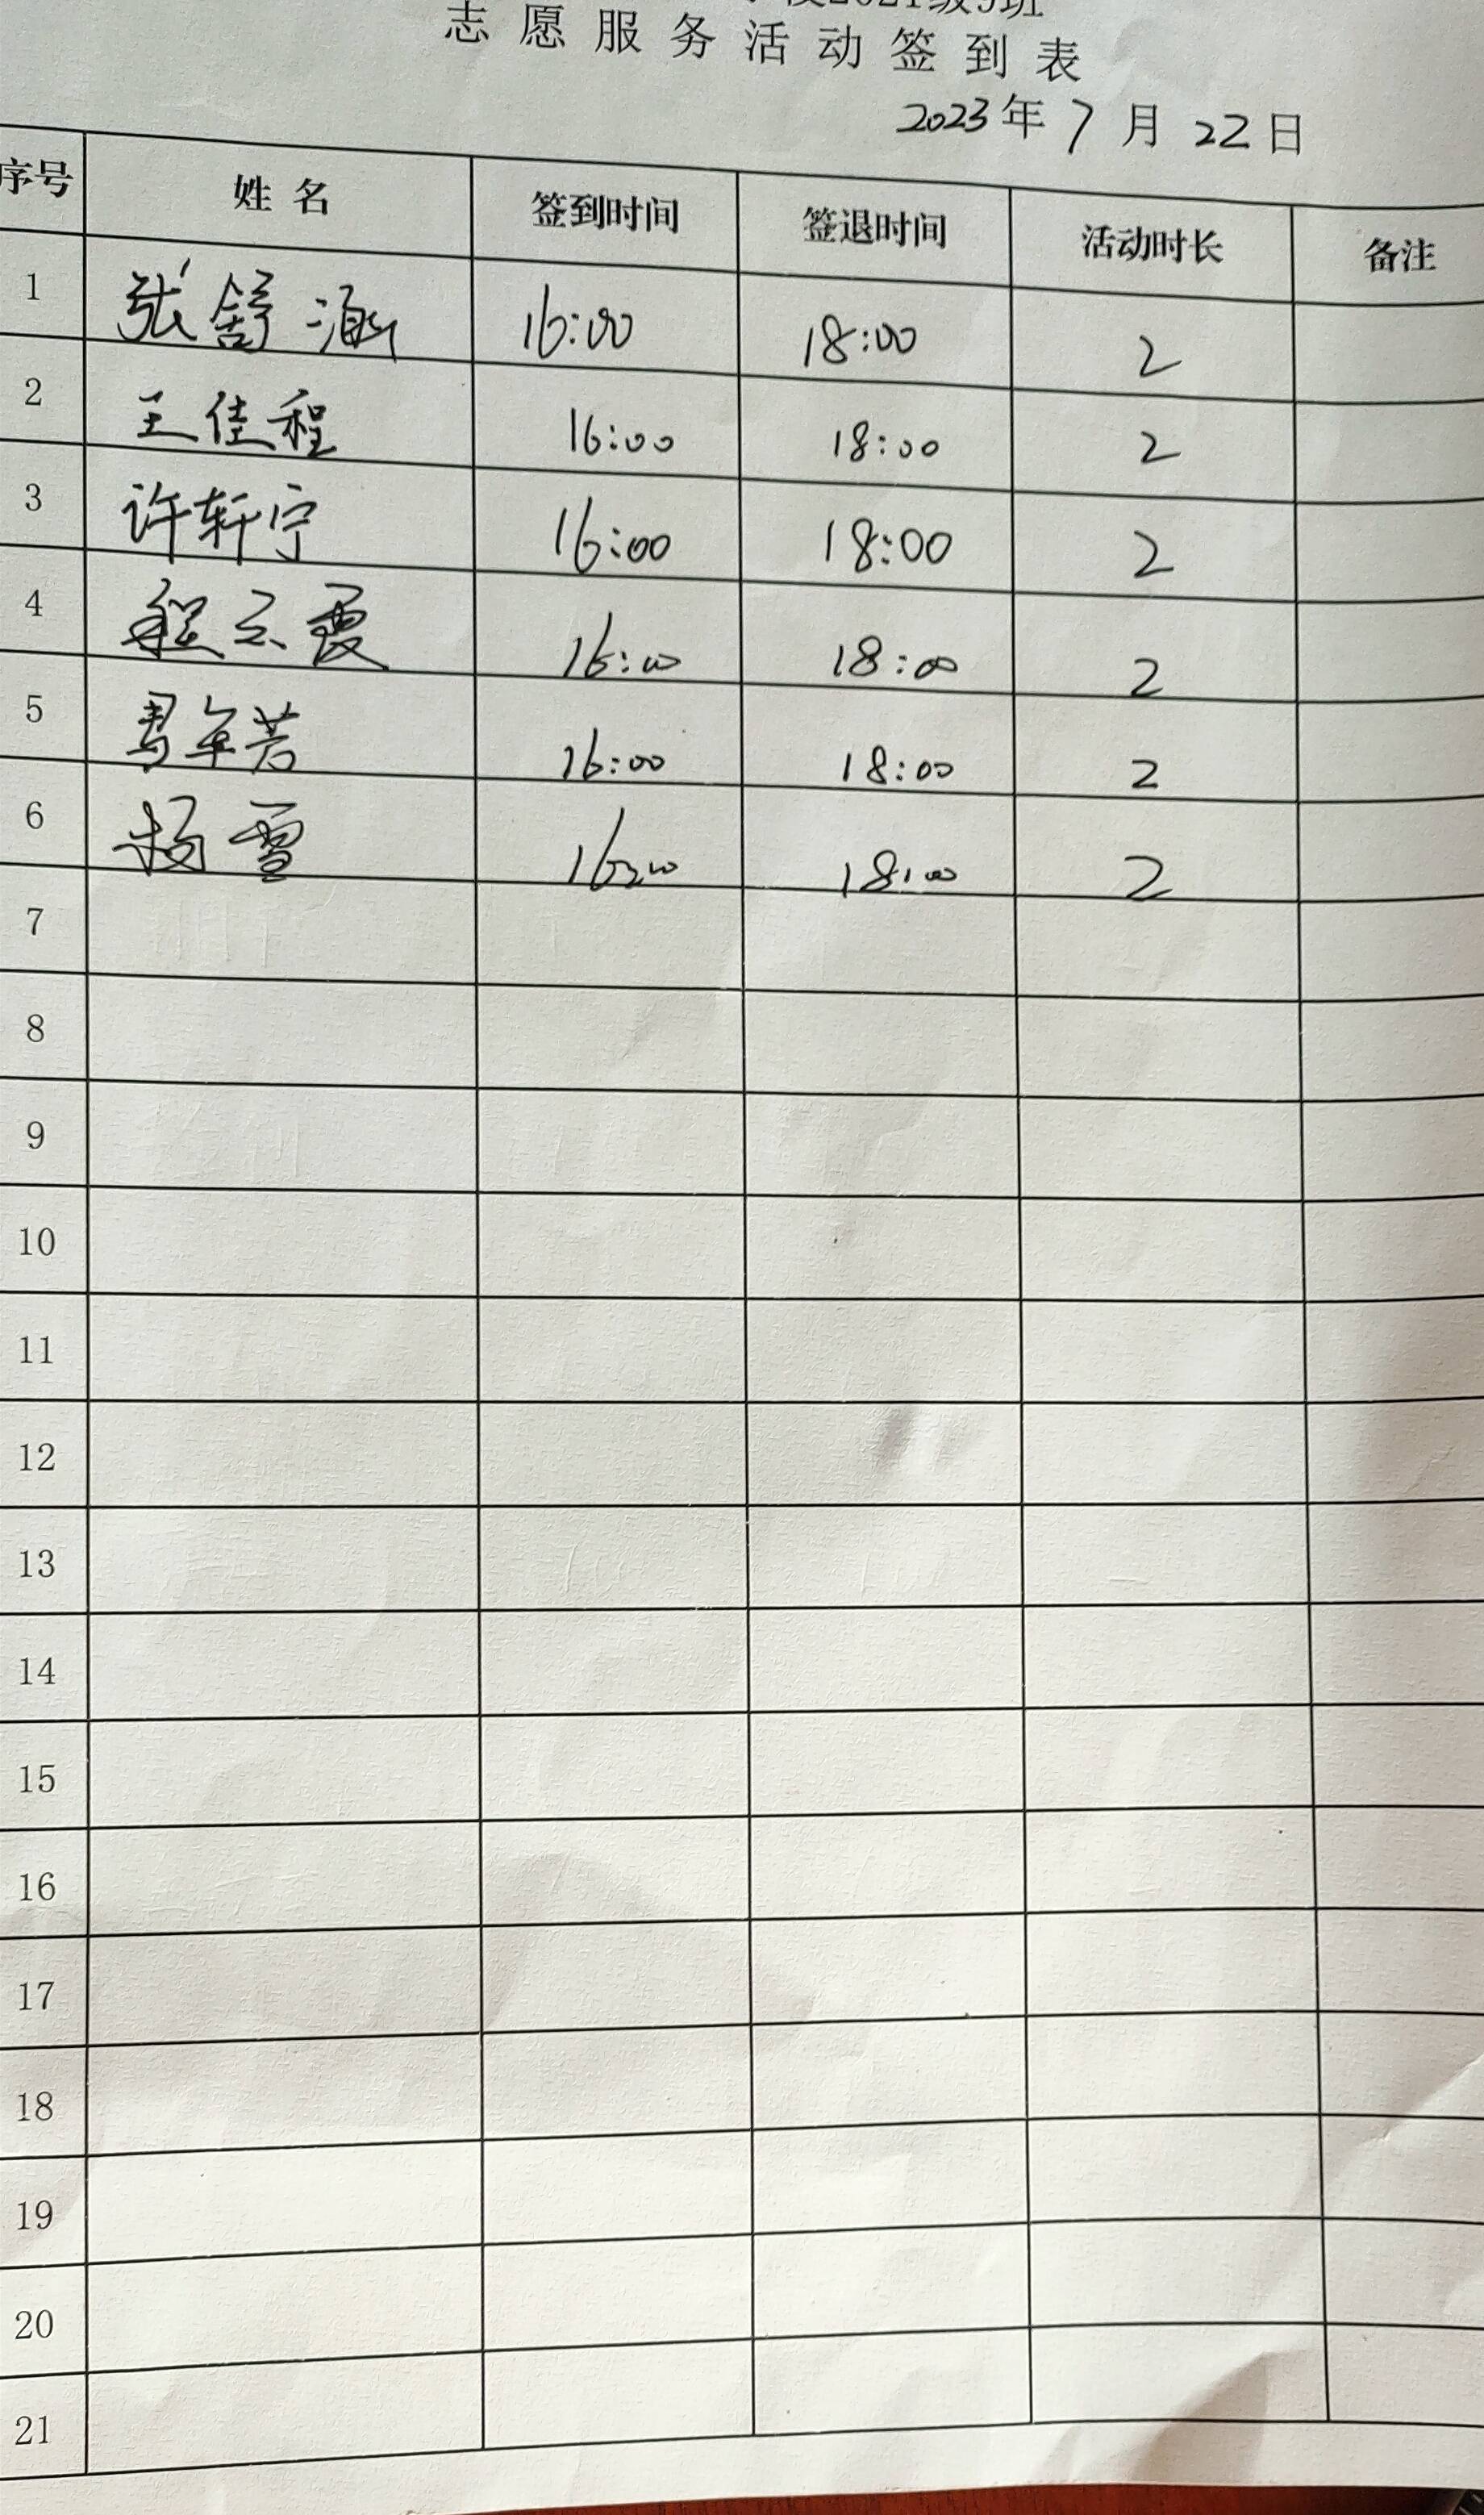 2021级9班
志愿服务活动签到表
2023年7月22日
序号 姓名 签到时间 签退时间 活动时长 备注
1 张舒涵 16:00 18:00 2
2 王佳程 16:00 18:00 2
3 许轩宁 16:00 18:00 2
4 程云霞 16:00 18:00 2
5 16:00 18:00 2
6 杨雪 16:00 18:00 2
7
8
9
10
11
12
13
14
15
16
17
18
19
20
21